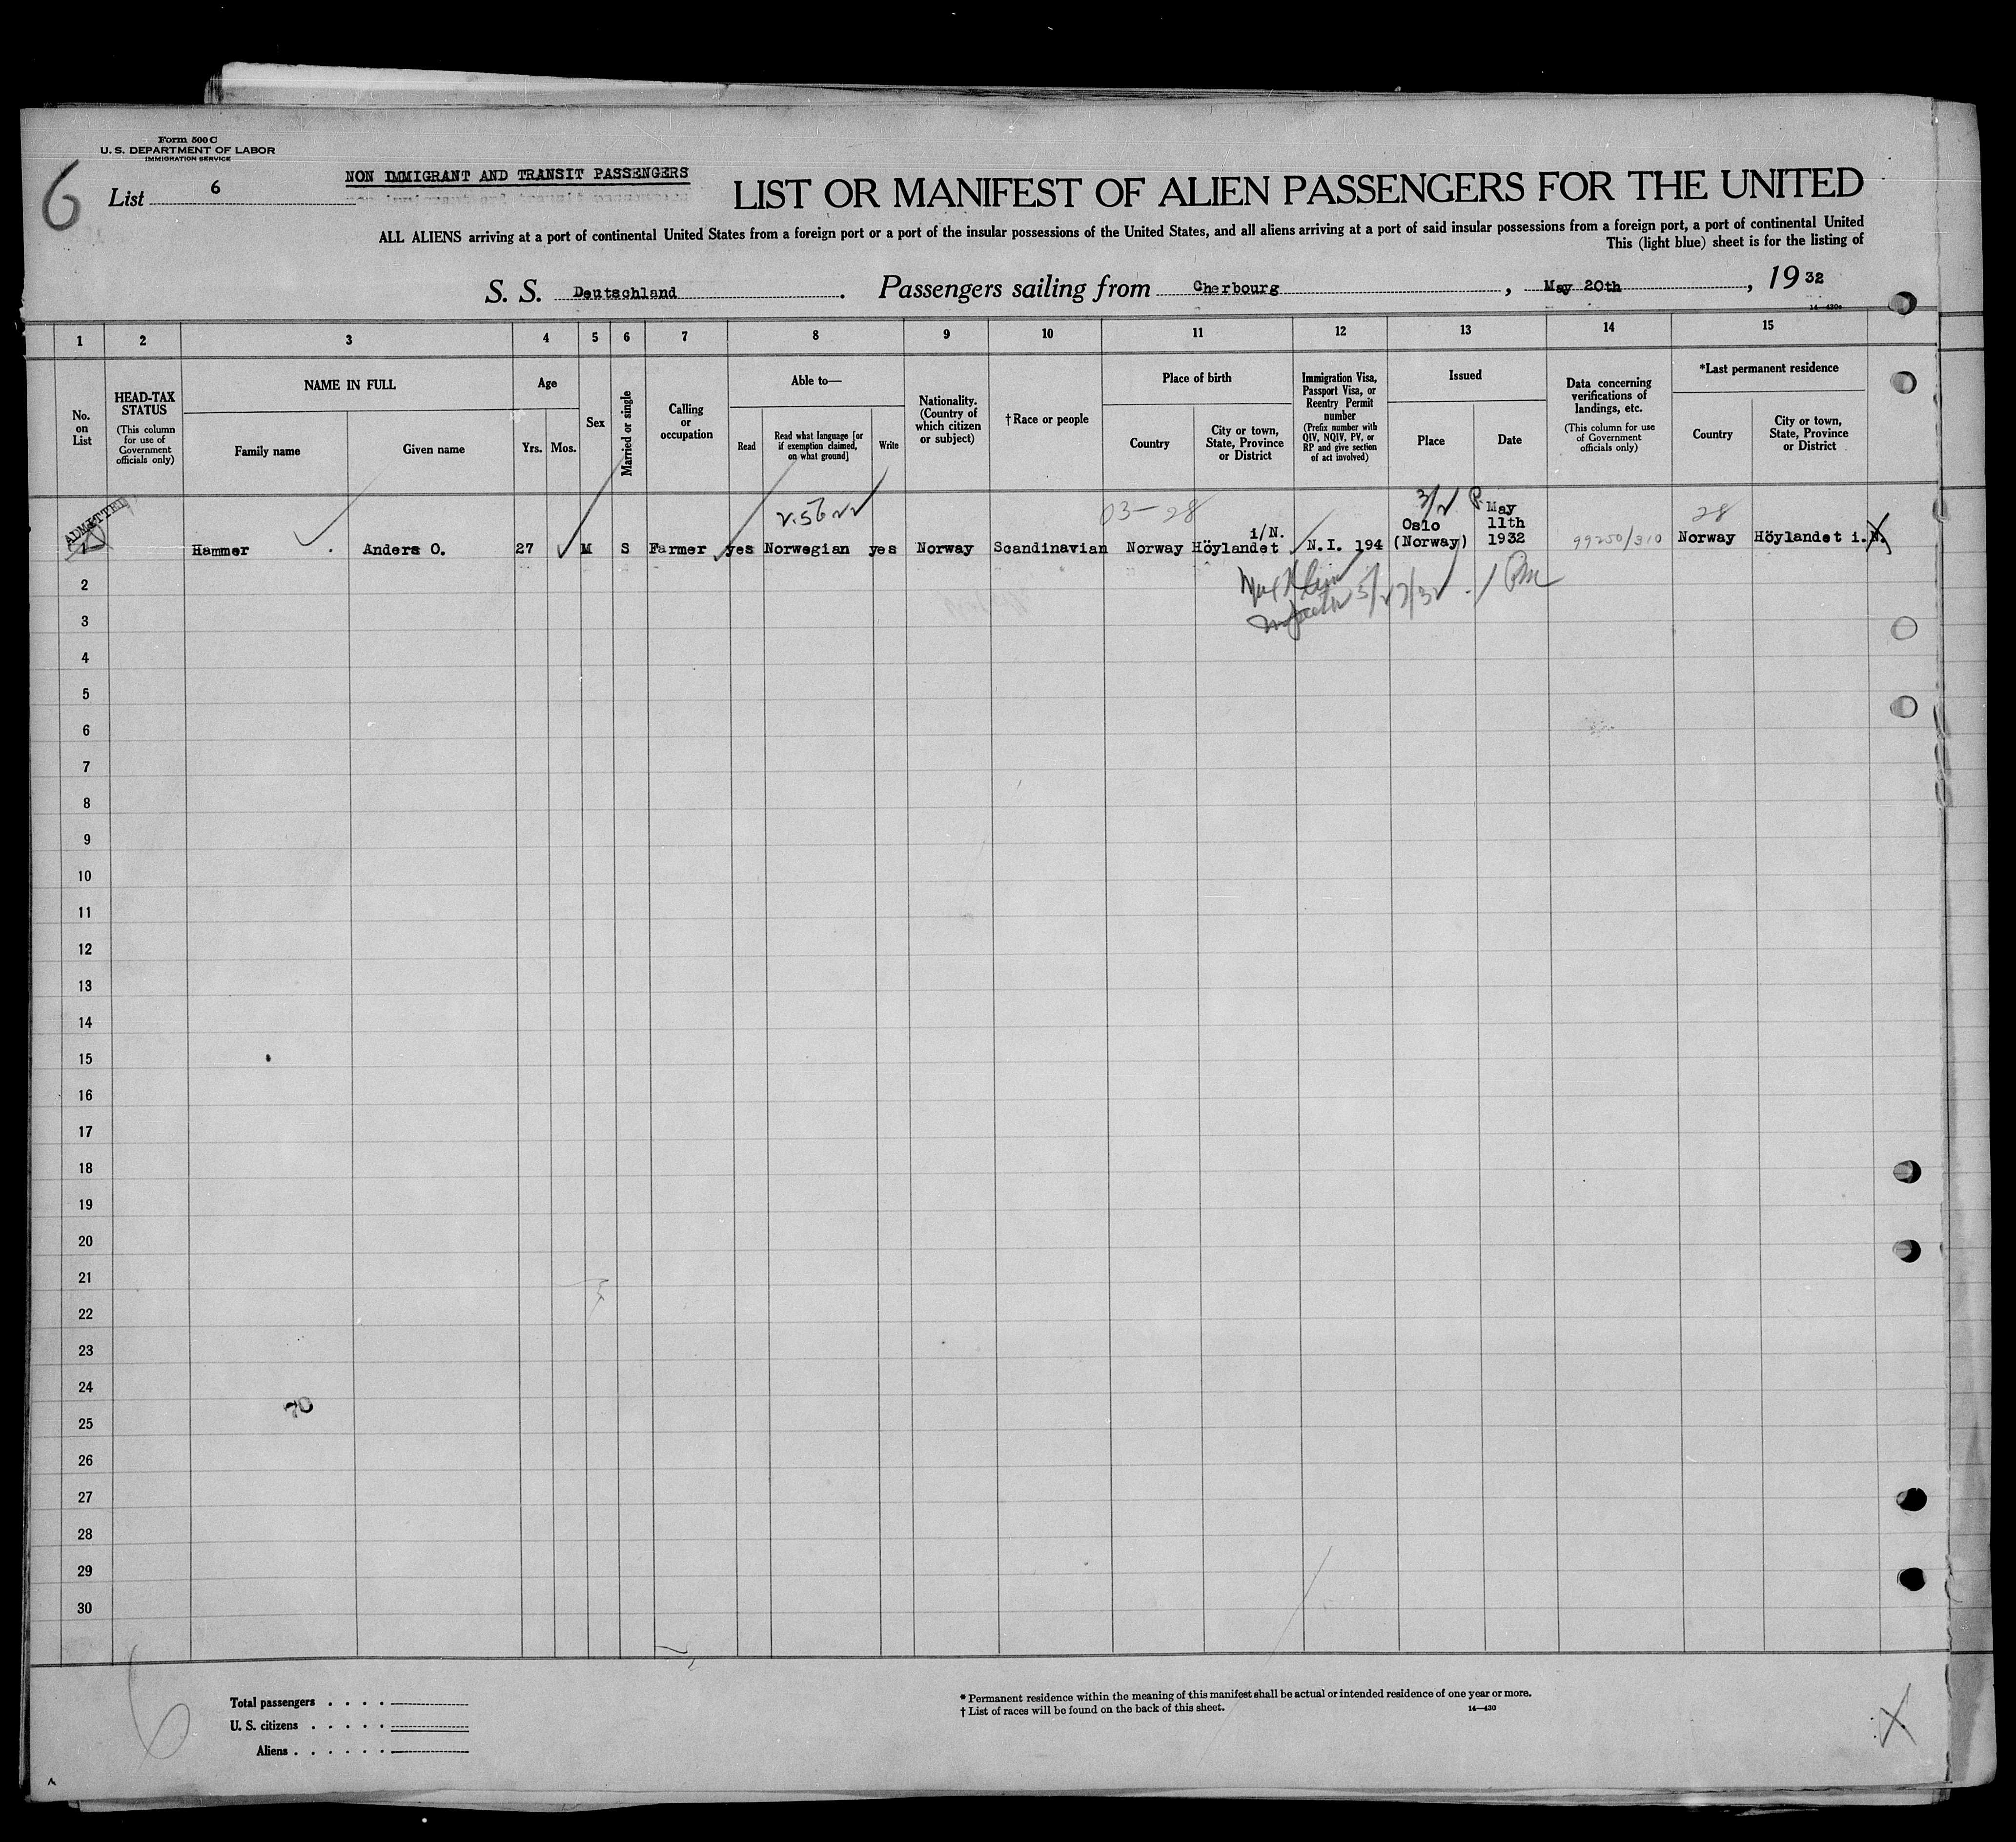 Form 500 C
U. S. DEPARTMENT OF LABOR
IMMIGRATION SERVICE
6
List 6
NON IMMIGRANT AND TRANSIT PASSENGERS
LIST OR MANIFEST OF ALIEN PASSENGERS FOR THE UNITED
ALL ALIENS arriving at a port of continental United States from a foreign port or a port of the insular possessions of the United States, and all aliens arriving at a port of said insular possessions from a foreign port, a port of continental United
This (light blue) sheet is for the listing of
S. S. Deutschland. Passengers sailing from Cherbourg, May 20th, 1932
14—430a
1 2 3 4 5 6 7 8 9 10 11 12 13 14 15
No. on List
HEAD-TAX STATUS
(This column for use of Government officials only)
NAME IN FULL
Family name
Given name
Age
Yrs.
Mos.
Sex
Married or single
Calling or occupation
Able to—
Read
Read what language [or if exemption claimed, on what ground]
Write
Nationality. (Country of which citizen or subject)
† Race or people
Place of birth
Country
City or town, State, Province or District
Immigration Visa, Passport Visa, or Reentry Permit number
(Prefix number with QIV, NQIV, PV, or RP and give section of act involved)
Issued
Place
Date
Data concerning verifications of landings, etc.
(This column for use of Government officials only)
*Last permanent residence
Country
City or town, State, Province or District
ADMITTED
03—28
28
1 Hammer Anders O. 27 M S Farmer yes Norwegian yes Norway Scandinavian Norway Höylandet i/N. N.I. 194 Oslo (Norway) May 11th 1932 99250/310 Norway Höylandet i.N.
2
3
4
5
6
7
8
9
10
11
12
13
14
15
16
17
18
19
20
21
22
23
24
25
26
27
28
29
30
Total passengers . . . .
U. S. citizens . . . . .
Aliens . . . . . .
* Permanent residence within the meaning of this manifest shall be actual or intended residence of one year or more.
† List of races will be found on the back of this sheet.
14—430
6
X